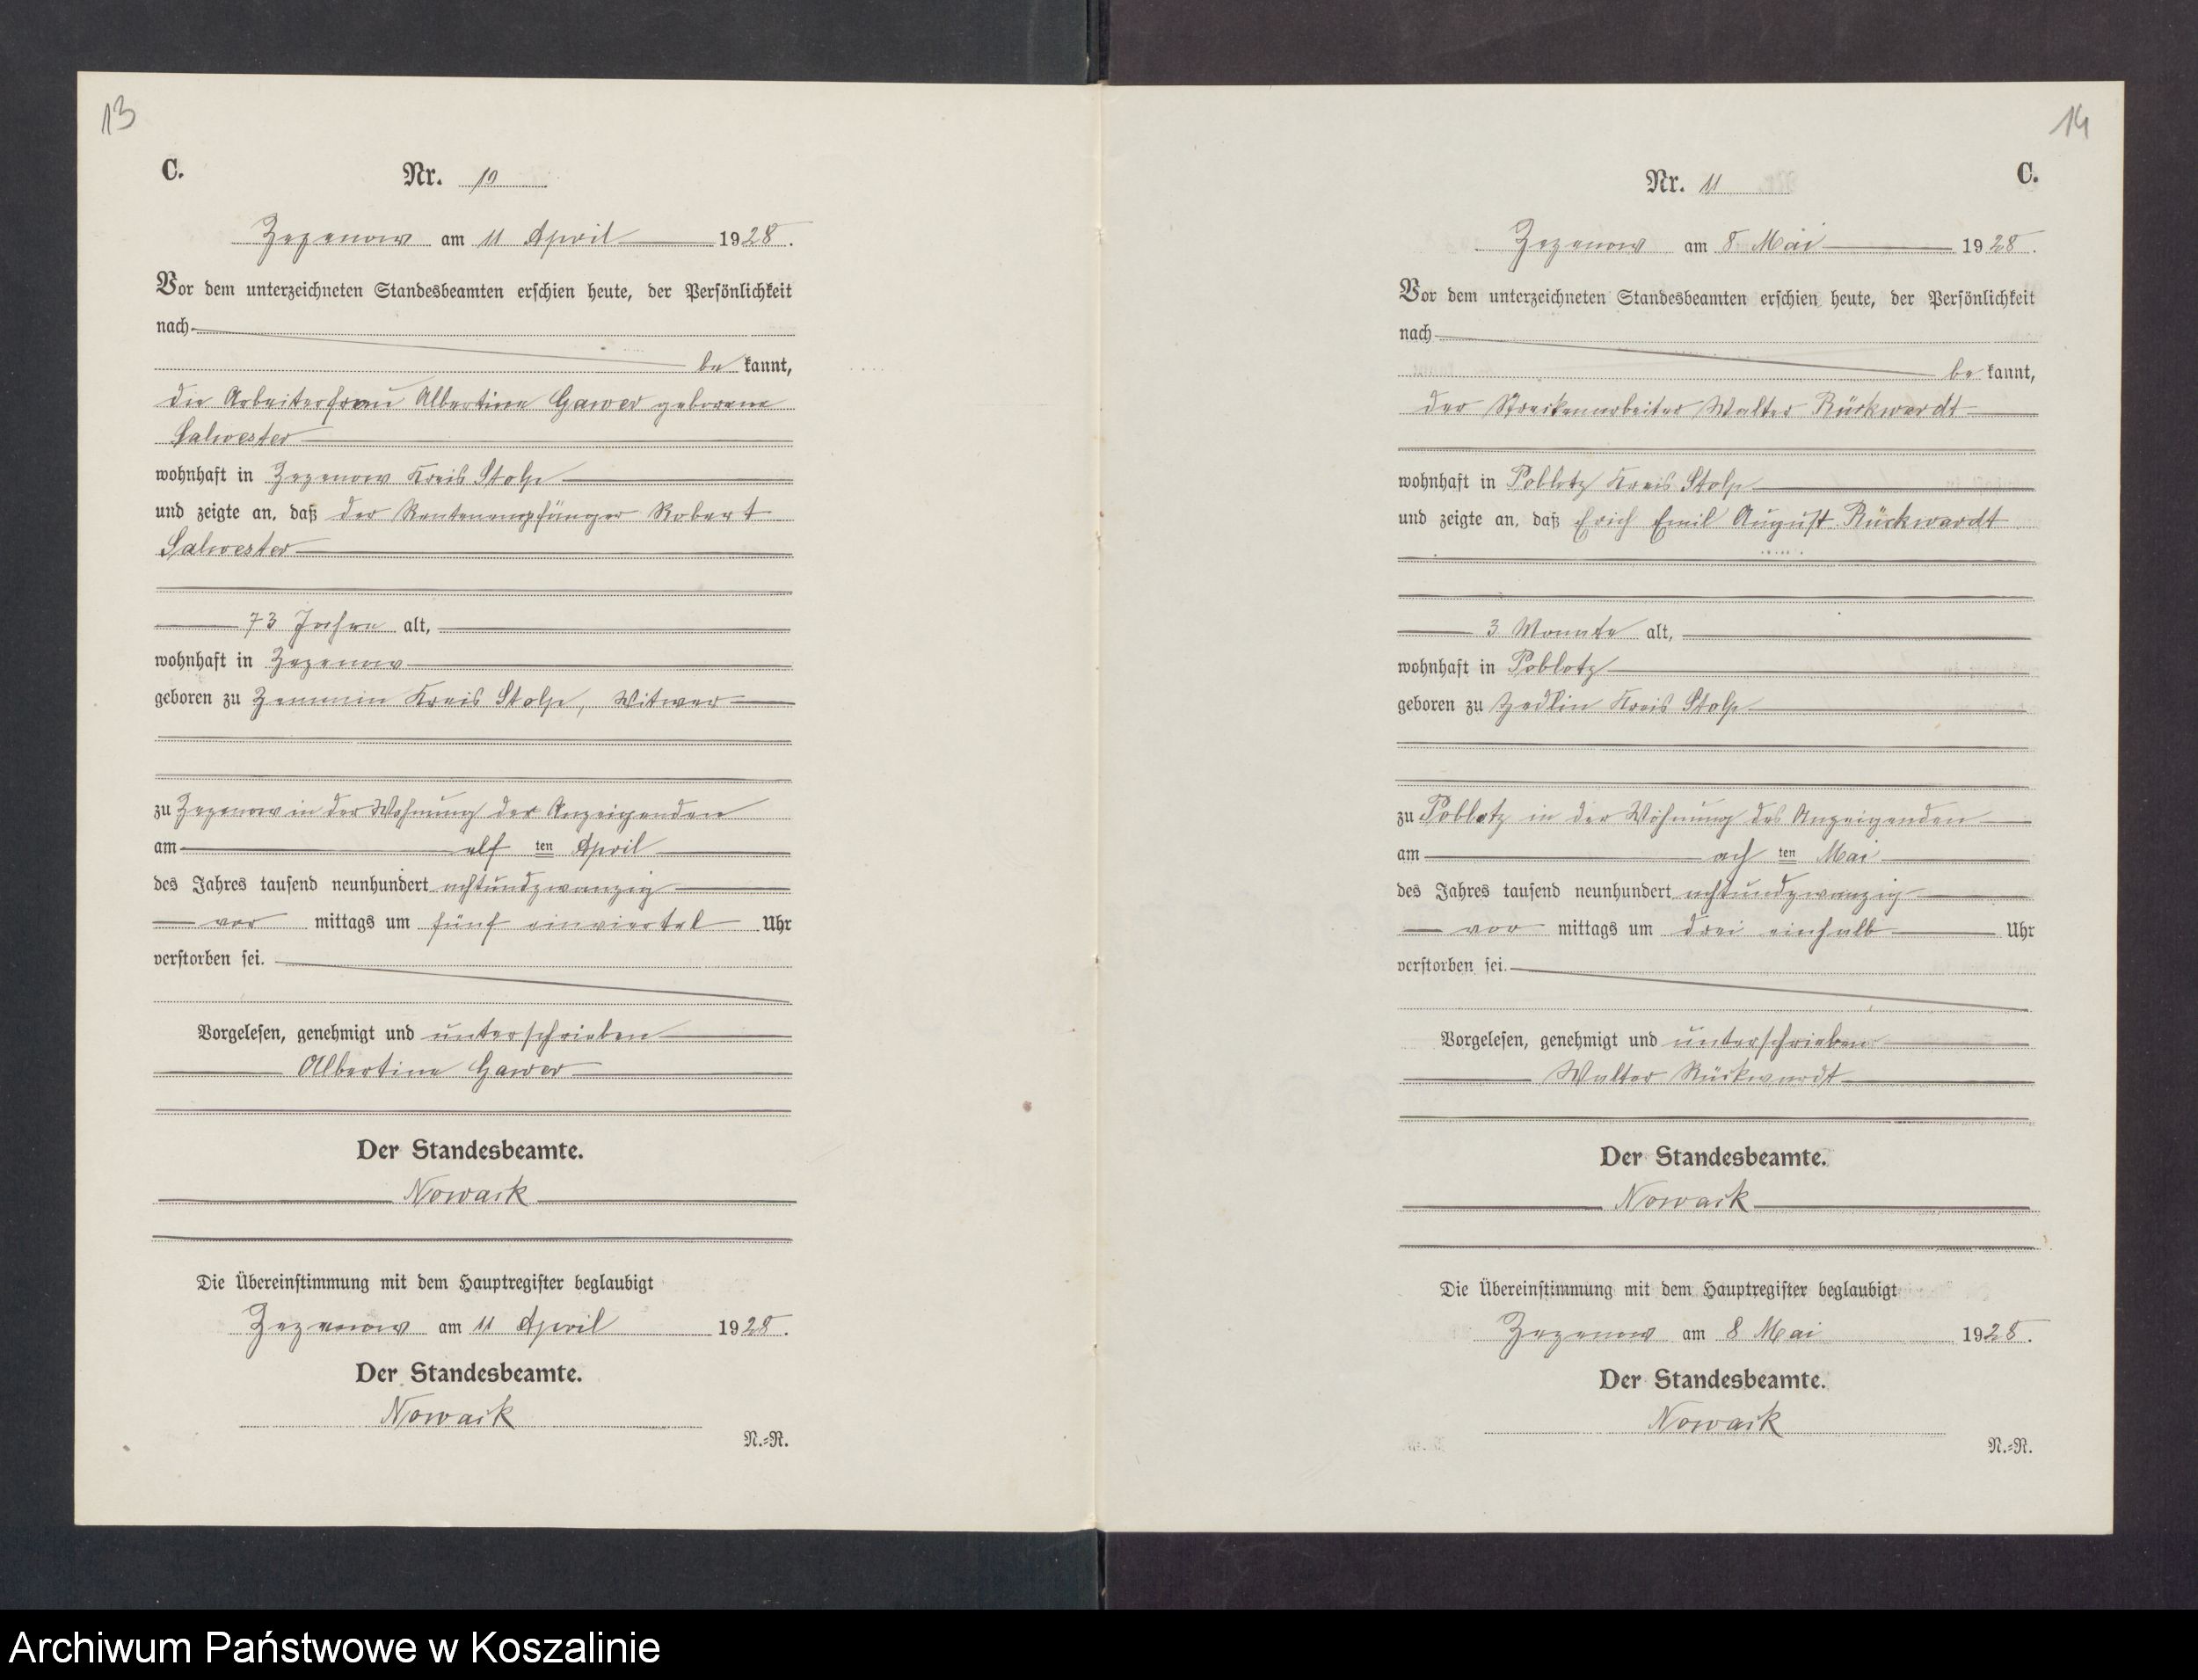 13
C.
Nr. 10
Zezenow am 11 April 1928.
Vor dem unterzeichneten Standesbeamten erschien heute, der Persönlichkeit
nach
be kannt,
die Arbeiterfrau Albertine Gawer geborene
Salwester
wohnhaft in Zezenow Kreis Stolp
und zeigte an, daß der Rentenempfänger Robert
Salwester
73 Jahre alt,
wohnhaft in Zezenow
geboren zu Zemmin Kreis Stolp, Witwer
zu Zezenow in der Wohnung der Anzeigenden
am elf ten April
des Jahres tausend neunhundert achtundzwanzig
vor mittags um fünf einviertel Uhr
verstorben sei.
Vorgelesen, genehmigt und unterschrieben
Albertine Gawer
Der Standesbeamte.
Nowack
Die Übereinstimmung mit dem Hauptregister beglaubigt
Zezenow am 11 April 1928.
Der Standesbeamte.
Nowack
N.=R.
14
C.
Nr. 11
Zezenow am 8 Mai 1928.
Vor dem unterzeichneten Standesbeamten erschien heute, der Persönlichkeit
nach
be kannt,
der Streckenarbeiter Walter Rückwardt
wohnhaft in Poblotz Kreis Stolp
und zeigte an, daß Erich Emil August Rückwardt
3 Monate alt,
wohnhaft in Poblotz
geboren zu Zedlin Kreis Stolp
zu Poblotz in der Wohnung des Anzeigenden
am ach ten Mai
des Jahres tausend neunhundert achtundzwanzig
vor mittags um drei einhalb Uhr
verstorben sei.
Vorgelesen, genehmigt und unterschrieben
Walter Rückwardt
Der Standesbeamte.
Nowack
Die Übereinstimmung mit dem Hauptregister beglaubigt
Zezenow am 8 Mai 1928.
Der Standesbeamte.
Nowack
N.=R.
Archiwum Państwowe w Koszalinie